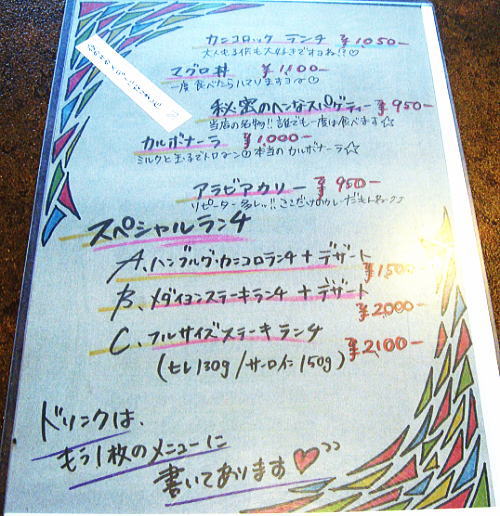 カニコロック ランチ ¥1050-
大人も子供も大好きですよね!?♡
マグロ丼 ¥1,100-
一度食べたらハマりますヨ〜♡
秘密のヘンなスパゲティー ¥950-
当店の名物!!誰でも一度は食べます☆
カルボナーラ ¥1,000-
ミルクと玉子でトロマ〜 本当のカルボナーラ☆
アラビアカリー ¥950-
リピーター多しッ!! ここだけのカレーだもん
スペシャルランチ
A、ハンブルグ・カニコロランチ+デザート
¥1,500-
B、メダイヨンステーキランチ+デザート
¥2,000-
C、フルサイズステーキランチ
¥2,100-
(ヒレ130g/サーロイン150g)
ドリンクは、
もう1枚のメニューに
書いてあります♥